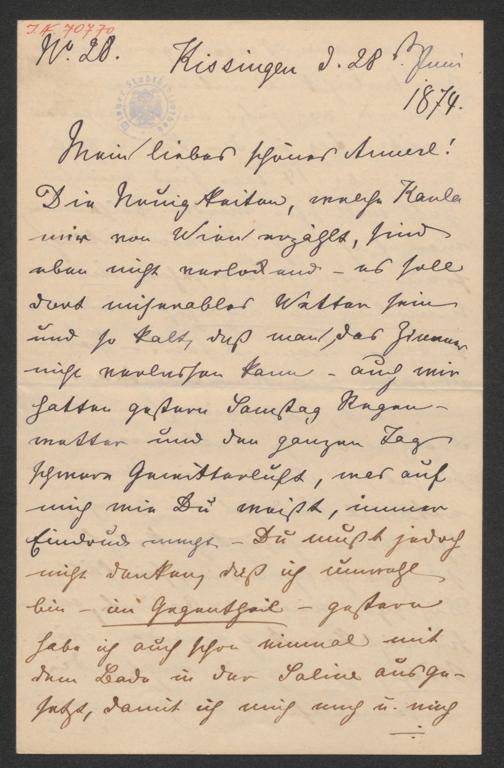 I.N. 70770
No. 28.
Kissingen d. 28 Juni
1874.
Mein liebes schönes Annerl!
Die Neuigkeiten, welche Karla
mir von Wien erzählt, sind
eben nicht verlockend – es soll
dort miserables Wetter sein
und so kalt, daß man das Zimmer
nicht verlassen kann – auch wir
hatten gestern Samstag Regen-
wetter und den ganzen Tag
schwere Gewitterluft, was auf
mich wie Du weißt, immer
Eindruck macht – Du mußt jedoch
nicht denken, daß ich unwohl
bin – im Gegentheil – gestern
habe ich auch schon einmal mit
dem Bade in der Saline ausge-
setzt, damit ich mich nach u. nach